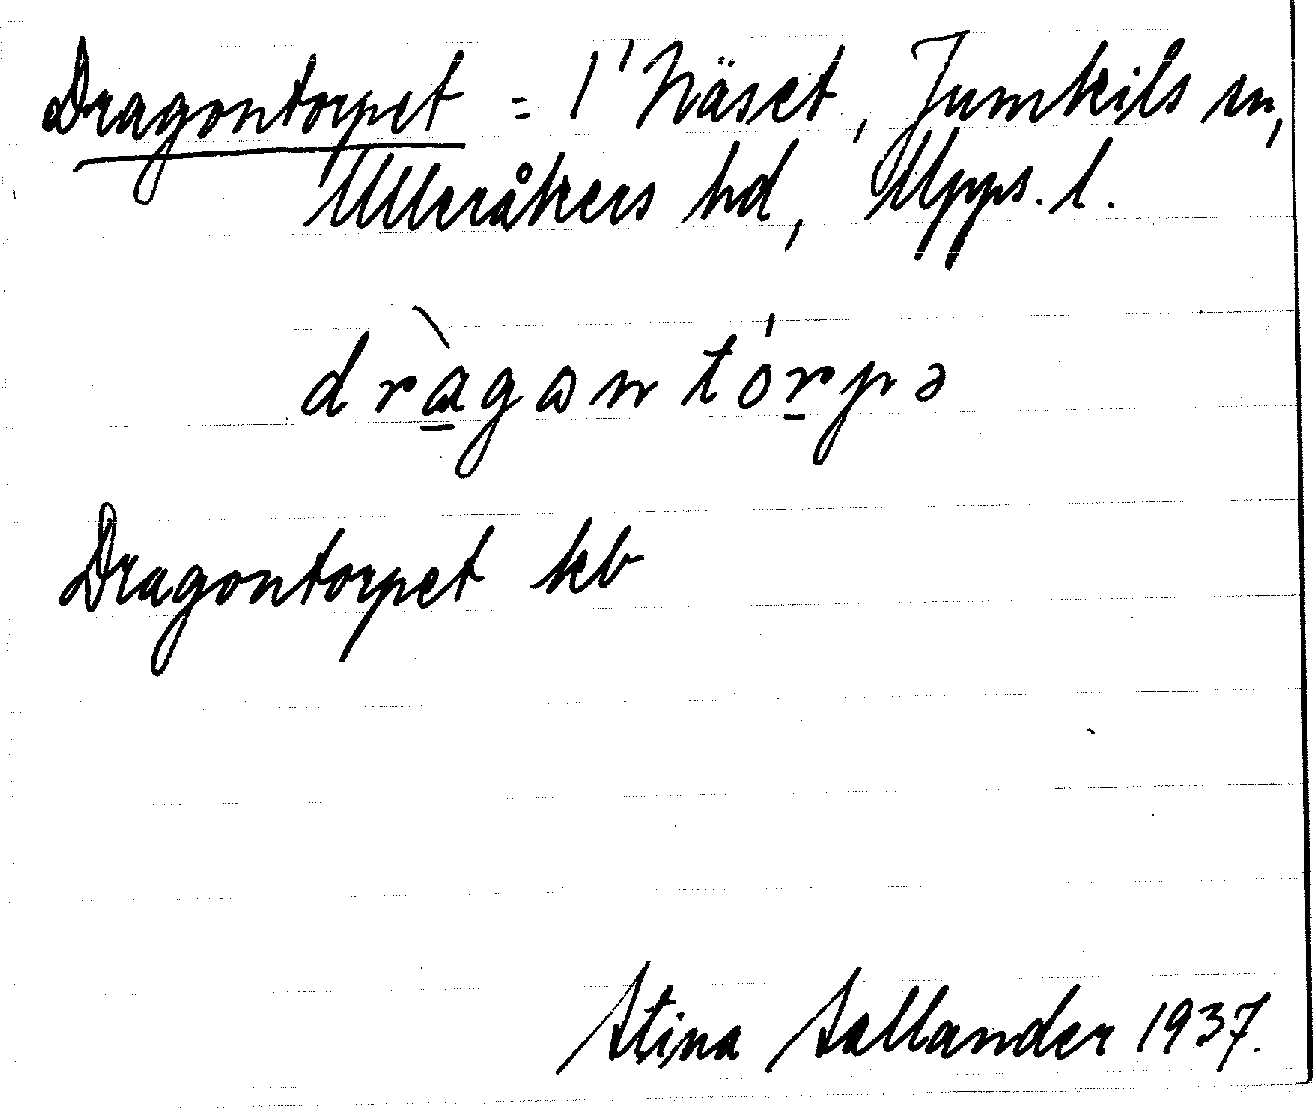 Dragontorpet = 1' Näset, Jumkils sn,
Ulleråkers hd, Upps. l.
dràgɷntórpə
Dragontorpet kb
Stina Sallander 1937.